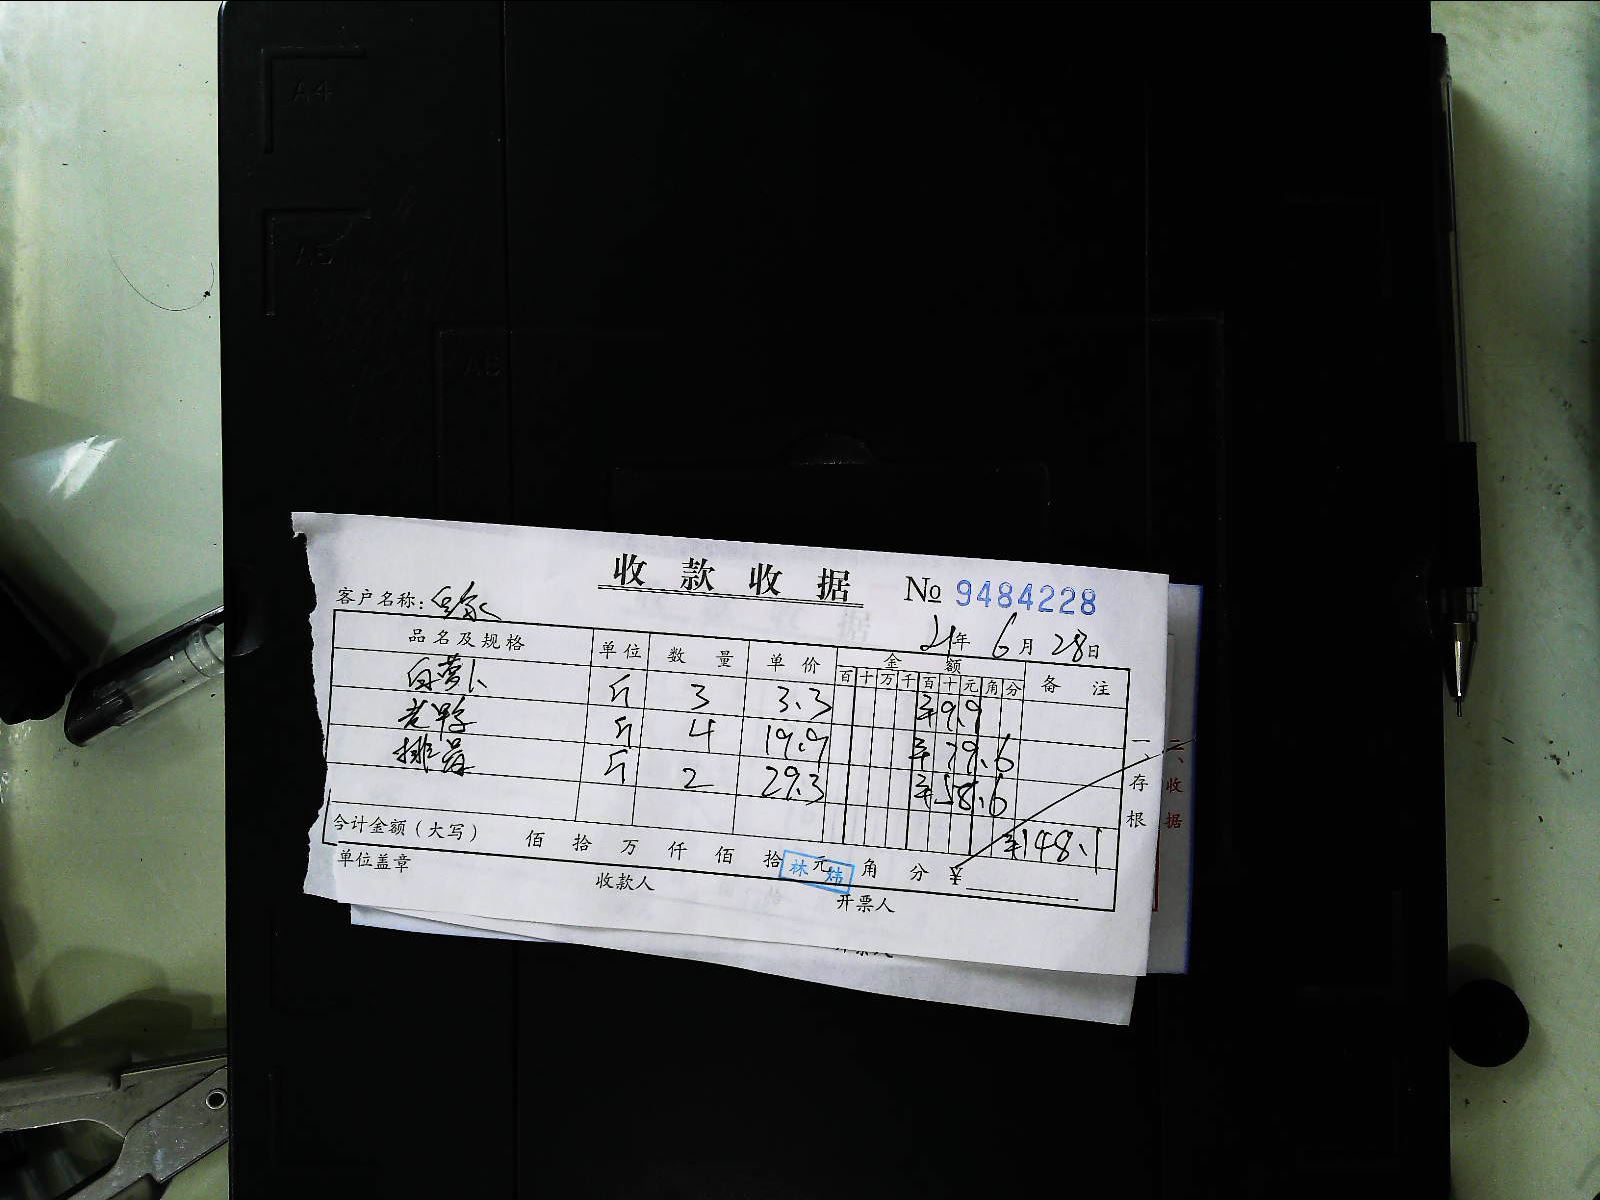 A4
A5
收款收据 № 9484228
客户名称：
21年 6月 28日
品名及规格 单位 数量 单价 金额 备注
百 十 万 千 百 十 元 角 分
白萝卜 斤 3 3.3 ¥9.9
老鸭 斤 4 19.9 ¥79.6
排骨 斤 2 29.3 ¥58.6
¥148.1
合计金额（大写） 佰 拾 万 仟 佰 拾 元 角 分 ¥
单位盖章 收款人 开票人
林炜
一、存根
二、收据